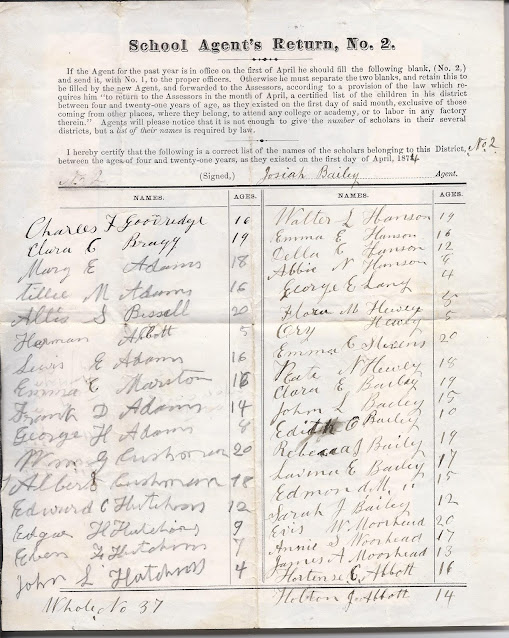 School Agent's Return, No. 2.
If the Agent for the past year is in office on the first of April he should fill the following blank, (No. 2,)
and send it, with No. 1, to the proper officers. Otherwise he must separate the two blanks, and retain this to
be filled by the new Agent, and forwarded to the Assessors, according to a provision of the law which re-
quires him "to return to the Assessors in the month of April, a certified list of the children in his district
between four and twenty-one years of age, as they existed on the first day of said month, exclusive of those
coming from other places, where they belong, to attend any college or academy, or to labor in any factory
therein." Agents will please notice that it is not enough to give the number of scholars in their several
districts, but a list of their names is required by law.
I hereby certify that the following is a correct list of the names of the scholars belonging to this District, No 2
between the ages of four and twenty-one years, as they existed on the first day of April, 1874
No 2 (Signed,) Josiah Bailey Agent.
NAMES. AGES.
Charles F Goodridge 16
Clara C Bragg 19
Mary E Adams 18
Tillie M Adams 16
Altis S Bissell 20
Herman Abbott 5
Lewis E Adams 16
Emma C Marston 16
Frank D Adams 14
George H Adams
Wm G Cushman 20
Albert Cushman 18
Edward C Hutchins 12
Edgar H Hutchins 9
Hutchins 7
John L Hutchins 4
Whole No 37
NAMES. AGES.
Walter L Hanson 19
Emma E Hanson 16
Della C Hanson 12
Abbie N Hanson
George E Lang 4
Flora M
Emma C Stevens 20
Kate N 18
Clara E Bailey 19
John L Bailey 15
Edith C Bailey 10
Rebecca J Baily 19
Lavina E Bailey 17
Edmond M. " 15
Sarah J Bailey 12
W Moorhead 20
Annie S Moorhead 17
James A Moorhead 13
Hortense C. Abbott 16
J. Abbott 14